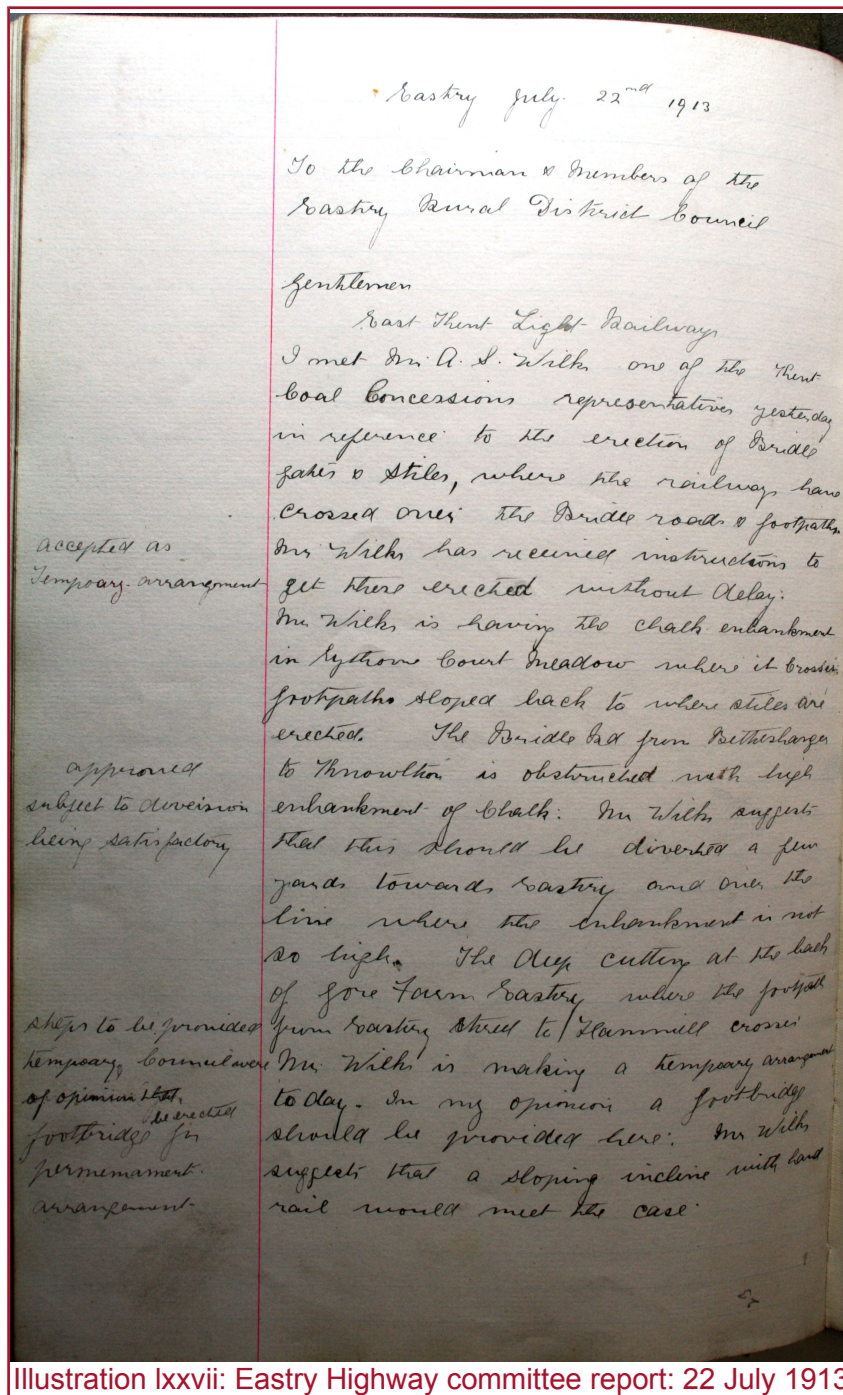 Eastry July. 22nd 1913
To the Chairman & Members of the
Eastry Rural District Council
Gentlemen
East Kent Light Railways
I met Mr A. S. Wilks one of the Kent
Coal Concessions representatives yesterday
in reference to the erection of Bridle
gates & Stiles, where the railways have
crossed over the Bridle roads & footpaths.
Mr Wilks has received instructions to
get these erected without delay.
Mr Wilks is having the chalk enbankment
in Eythorne Court Meadow where it Crosses
footpaths sloped back to where stiles are
erected. The Bridle Rd from Betteshanger
to Knowlton is obstructed with high
enbankment of Chalk. Mr Wilks suggests
that this should be diverted a few
yards towards Eastry and over the
line where the enbankment is not
so high. The deep cutting at the back
of Gore Farm Eastry where the footpath
from Eastry Street to Hammill crosses
Mr Wilks is making a tempoary arrangement
to day. In my opinion a footbridge
should be provided here. Mr Wilks
suggests that a sloping incline with hand
rail would meet the case
accepted as
Tempoary arrangement
approved
subject to diversion
being satisfactory
steps to be provided
tempoary, Council were
of opinion that
footbridge be erected for
permemament.
arrangement
Illustration lxxvii: Eastry Highway committee report: 22 July 1913